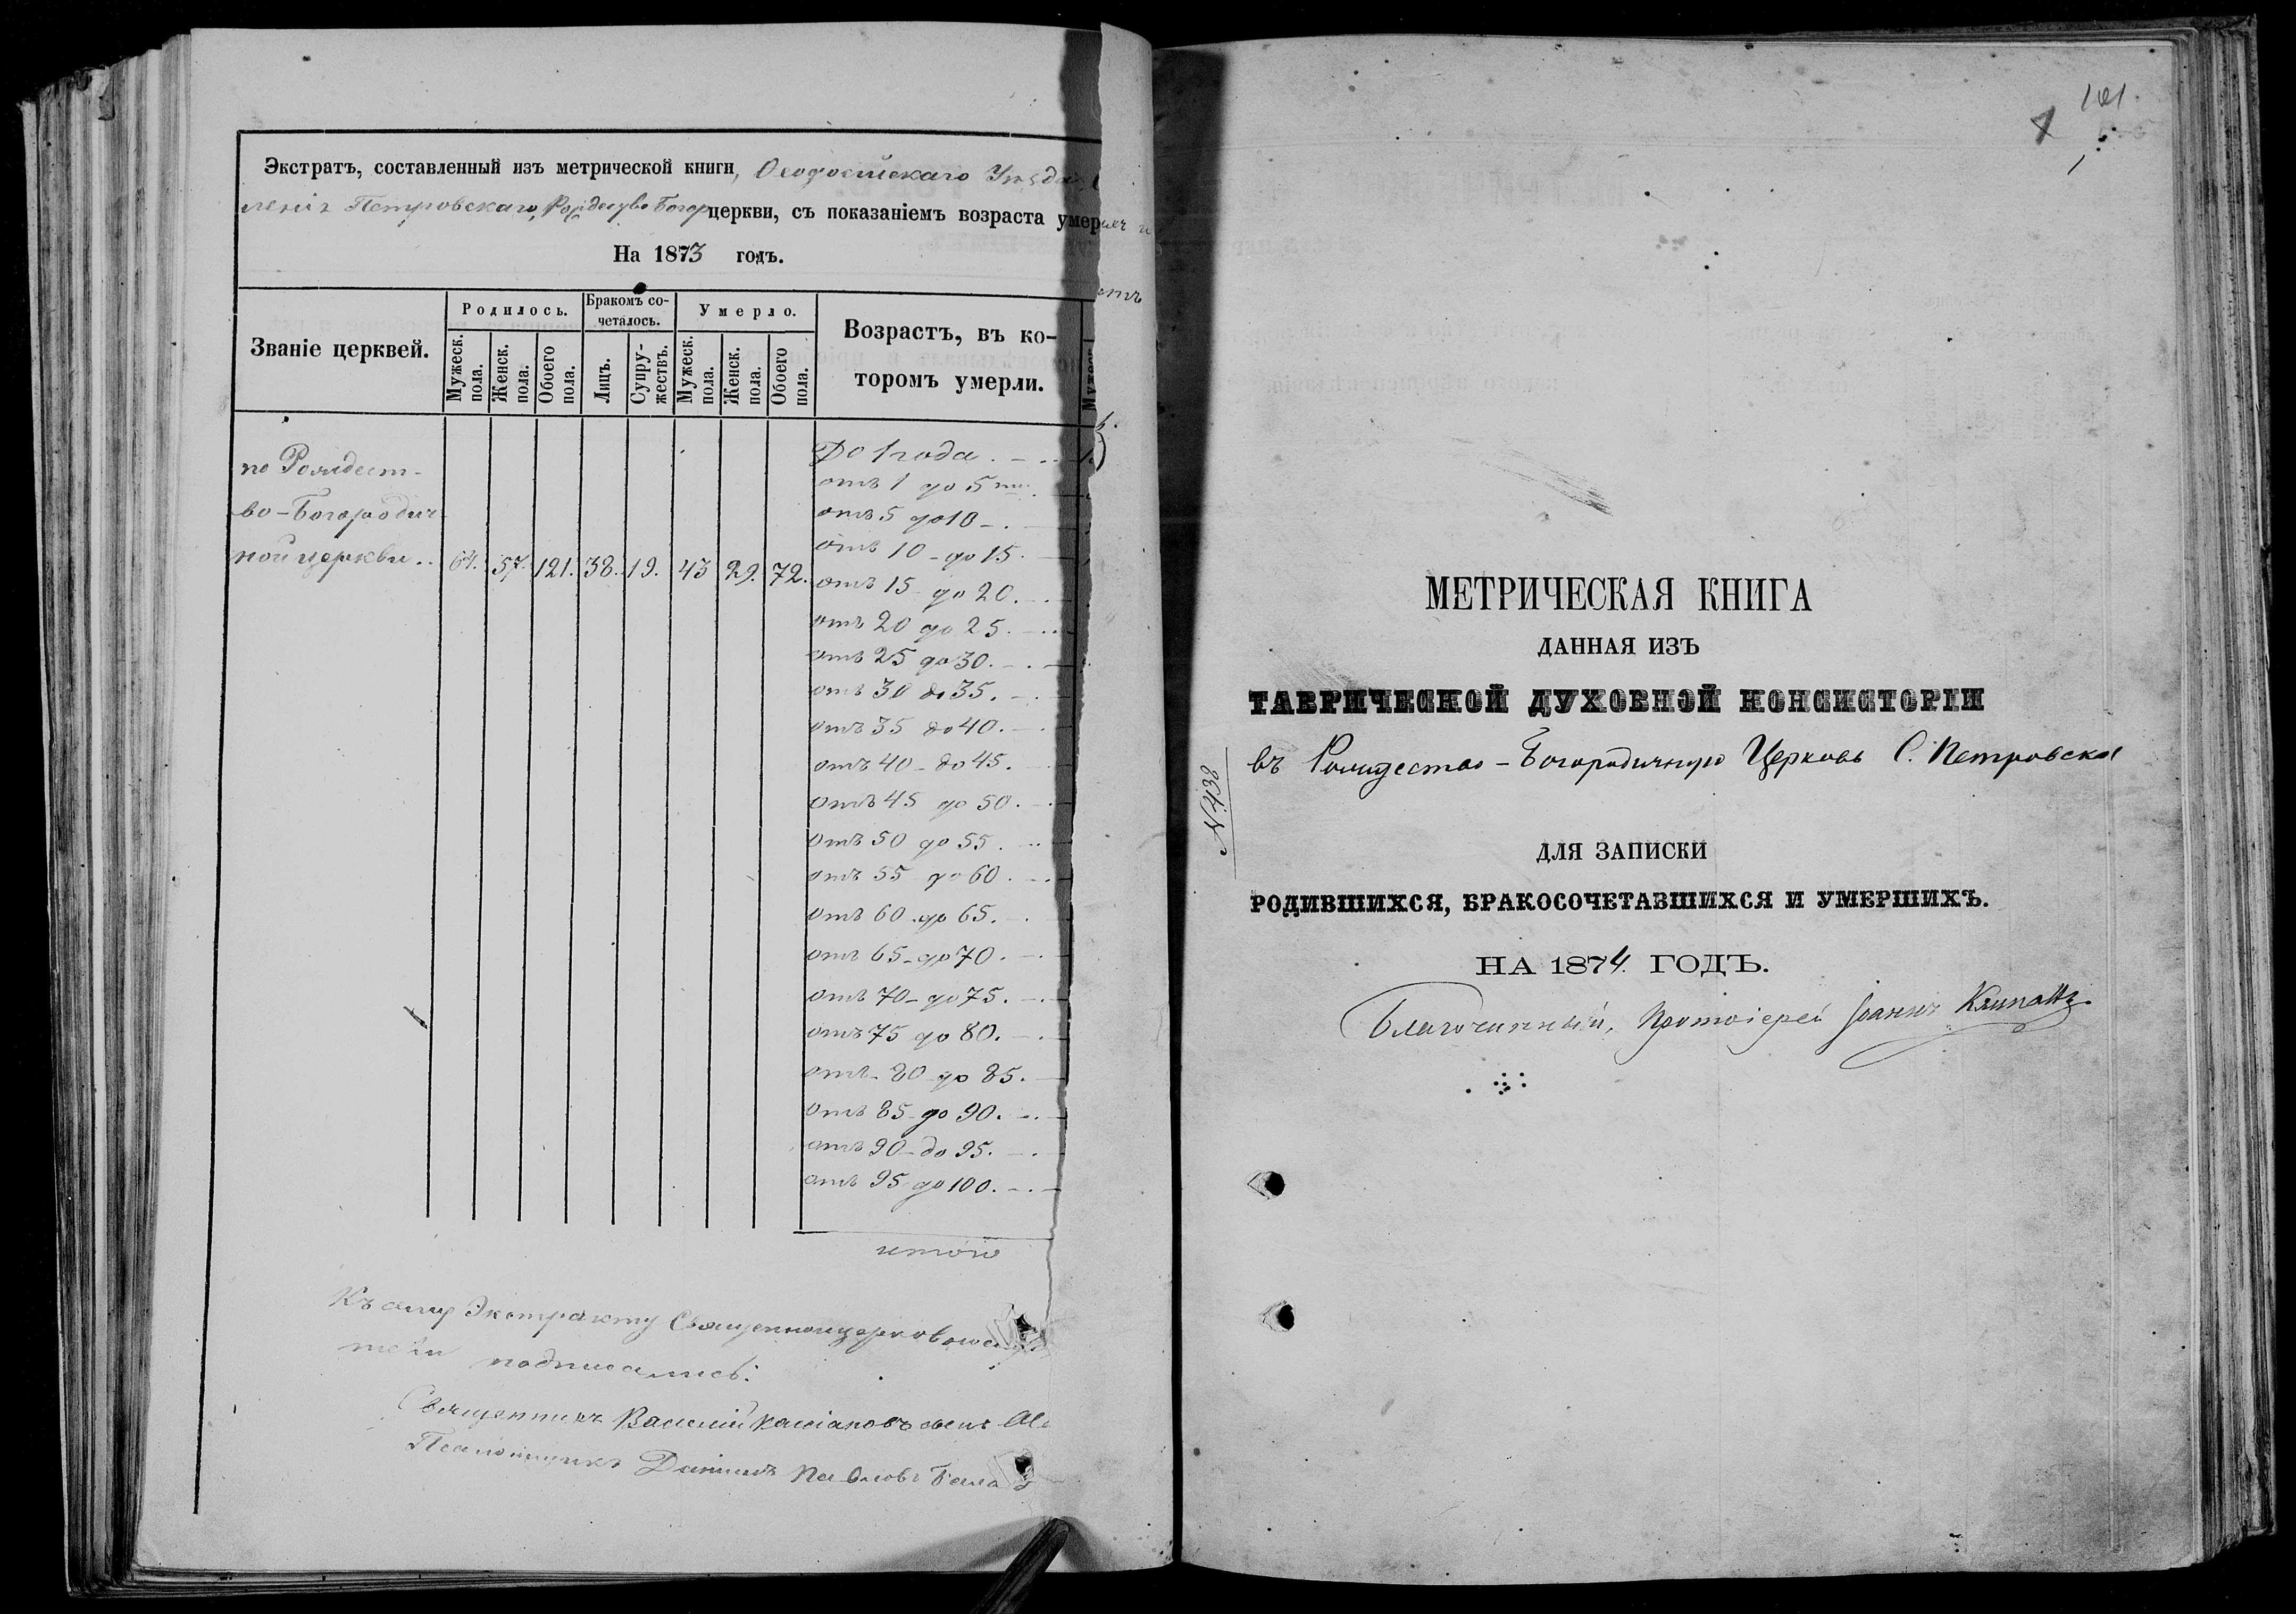 Экстратъ, составленный изъ метрической книги, Ѳеодосійскаго Уѣзда,
ленія Петровскаго, Рождество Богор церкви, съ показаніемъ возраста умер
На 1873 годъ.
Званіе церквей.
Родилось.
Бракомъ со-
четалось.
Умерло.
Возрастъ, въ ко-
торомъ умерли.
Мужеск. пола.
Женск. пола.
Обоего пола.
Лицъ.
Супру-
жествъ.
Мужеск. пола.
Женск. пола.
Обоего пола.
по Рождест-
во-Богородич
ной церкви.. 64. 57. 121. 38. 19. 43 29. 72.
До 1 года
отъ 1 до 5
отъ 5 до 10
отъ 10 до 15
отъ 15 до 20.
отъ 20 до 25.
отъ 25 до 30.
отъ 30 до 35.
отъ 35 до 40.
отъ 40 до 45.
отъ 45 до 50.
отъ 50 до 55.
отъ 55 до 60.
отъ 60 до 65.
отъ 65 до 70.
отъ 70 до 75.
отъ 75 до 80.
отъ 80 до 85.
отъ 85 до 90.
отъ 90 до 95.
отъ 95 до 100.
итого
Къ сему Экстракту Священноцерковнослу
тели подписались:
Священникъ Василий Кассіановъ сынъ
Псаломщикъ Даніилъ Павловъ
101.
1
МЕТРИЧЕСКАЯ КНИГА
ДАННАЯ ИЗЪ
ТАВРИЧЕСКОЙ ДУХОВНОЙ КОНСИСТОРІИ
въ Рождество-Богородичную Церковь С. Петровска
N. 438
ДЛЯ ЗАПИСКИ
РОДИВШИХСЯ, БРАКОСОЧЕТАВШИХСЯ И УМЕРШИХЪ.
НА 1874. ГОДЪ.
Благочинный, Протоіерей Іоаннъ